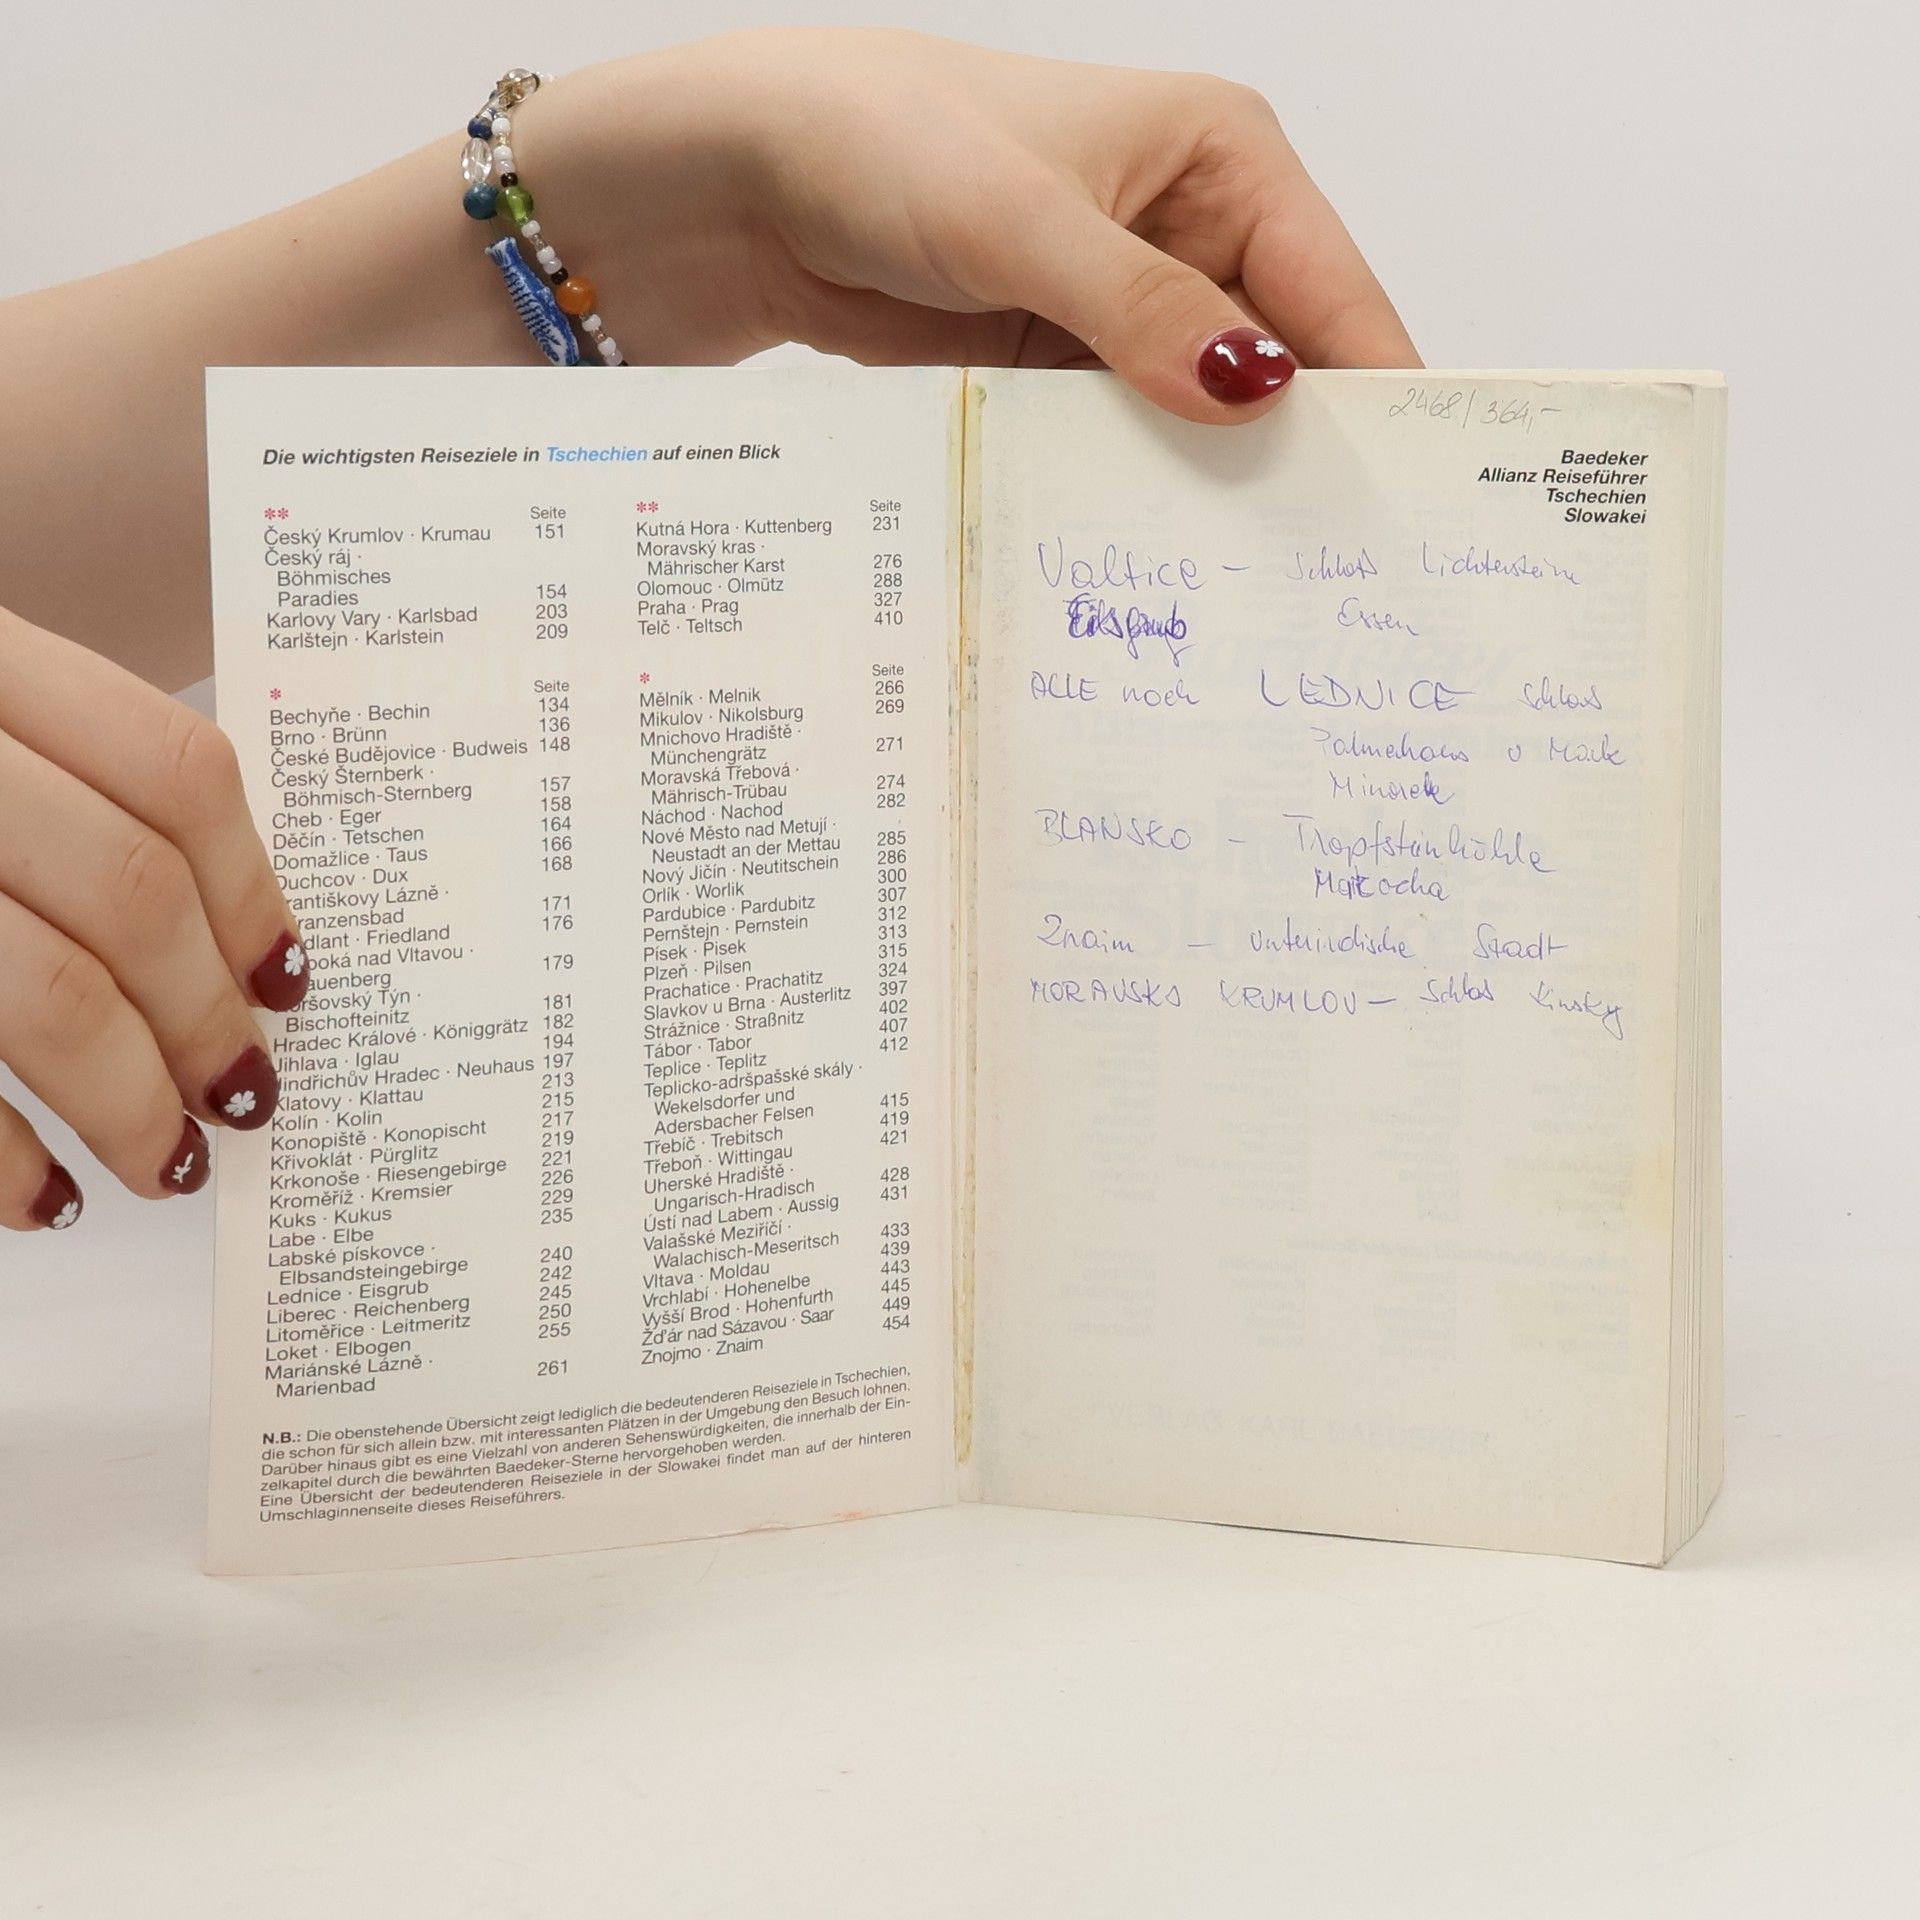 Die wichtigsten Reiseziele in Tschechien auf einen Blick
** Seite
Český Krumlov · Krumau 151
Český ráj ·
Böhmisches
Paradies 154
Karlovy Vary · Karlsbad 203
Karlštejn · Karlstein 209
** Seite
Kutná Hora · Kuttenberg 231
Moravský kras ·
Mährischer Karst 276
Olomouc · Olmütz 288
Praha · Prag 327
Telč · Teltsch 410
* Seite
Bechyňe · Bechin 134
Brno · Brünn 136
České Budějovice · Budweis 148
Český Šternberk ·
Böhmisch-Sternberg 157
Cheb · Eger 158
Děčín · Tetschen 164
Domažlice · Taus 166
Duchcov · Dux 168
rantiškovy Lázně ·
ranzensbad 171
dlant · Friedland 176
boká nad Vltavou ·
auenberg 179
oršovský Týn ·
Bischofteinitz 181
Hradec Králové · Königgrätz 182
Jihlava · Iglau 194
Jindřichův Hradec · Neuhaus 197
Klatovy · Klattau 213
Kolín · Kolin 215
Konopiště · Konopischt 217
Křivoklát · Pürglitz 219
Krkonoše · Riesengebirge 221
Kroměříž · Kremsier 226
Kuks · Kukus 229
Labe · Elbe 235
Labské pískovce ·
Elbsandsteingebirge 240
Lednice · Eisgrub 242
Liberec · Reichenberg 245
Litoměřice · Leitmeritz 250
Loket · Elbogen 255
Mariánské Lázně ·
Marienbad 261
* Seite
Mělník · Melnik 266
Mikulov · Nikolsburg 269
Mnichovo Hradiště ·
Münchengrätz 271
Moravská Třebová ·
Mährisch-Trübau 274
Náchod · Nachod 282
Nové Město nad Metují ·
Neustadt an der Mettau 285
Nový Jičín · Neutitschein 286
Orlík · Worlik 300
Pardubice · Pardubitz 307
Pernštejn · Pernstein 312
Písek · Pisek 313
Plzeň · Pilsen 315
Prachatice · Prachatitz 324
Slavkov u Brna · Austerlitz 397
Strážnice · Straßnitz 402
Tábor · Tabor 407
Teplice · Teplitz 412
Teplicko-adršpašské skály ·
Wekelsdorfer und
Adersbacher Felsen 415
Třebíč · Trebitsch 419
Třeboň · Wittingau 421
Uherské Hradiště ·
Ungarisch-Hradisch 428
Ústí nad Labem · Aussig 431
Valašské Meziříčí ·
Walachisch-Meseritsch 433
Vltava · Moldau 439
Vrchlabí · Hohenelbe 443
Vyšší Brod · Hohenfurth 445
Žďár nad Sázavou · Saar 449
Znojmo · Znaim 454
N.B.: Die obenstehende Übersicht zeigt lediglich die bedeutenderen Reiseziele in Tschechien,
die schon für sich allein bzw. mit interessanten Plätzen in der Umgebung den Besuch lohnen.
Darüber hinaus gibt es eine Vielzahl von anderen Sehenswürdigkeiten, die innerhalb der Ein-
zelkapitel durch die bewährten Baedeker-Sterne hervorgehoben werden.
Eine Übersicht der bedeutenderen Reiseziele in der Slowakei findet man auf der hinteren
Umschlaginnenseite dieses Reiseführers.
2468/364,-
Baedeker
Allianz Reiseführer
Tschechien
Slowakei
Valtice - Schloß Lichtensteine
Eisgrub Essen
ALLE noch LEDNICE Schloss
Palmehaus u
Minarek
BLANSKO - Tropfsteinhöhle
Macocha
Znaim - unterirdische Stadt
MORAVSKS KRUMLOV - Schloß Kinsky